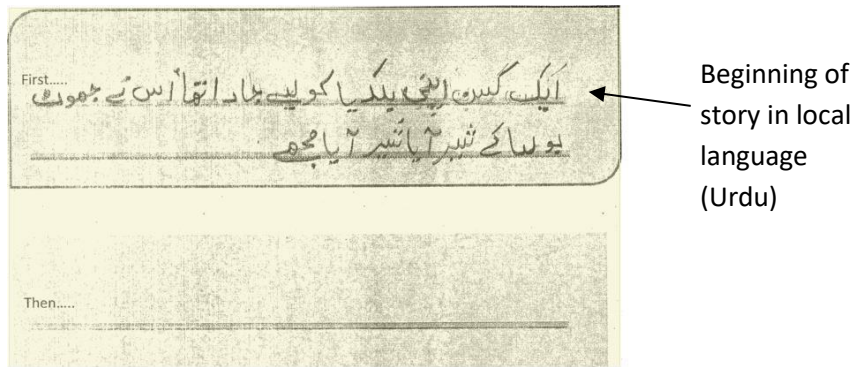 First.....
ایک کسن اپنی بکدیا کو لیے جاد اتھا اس نے جھوٹ
بولا کے شیر آیا شیر آیا مجھے
Then.....
Beginning of
story in local
language
(Urdu)